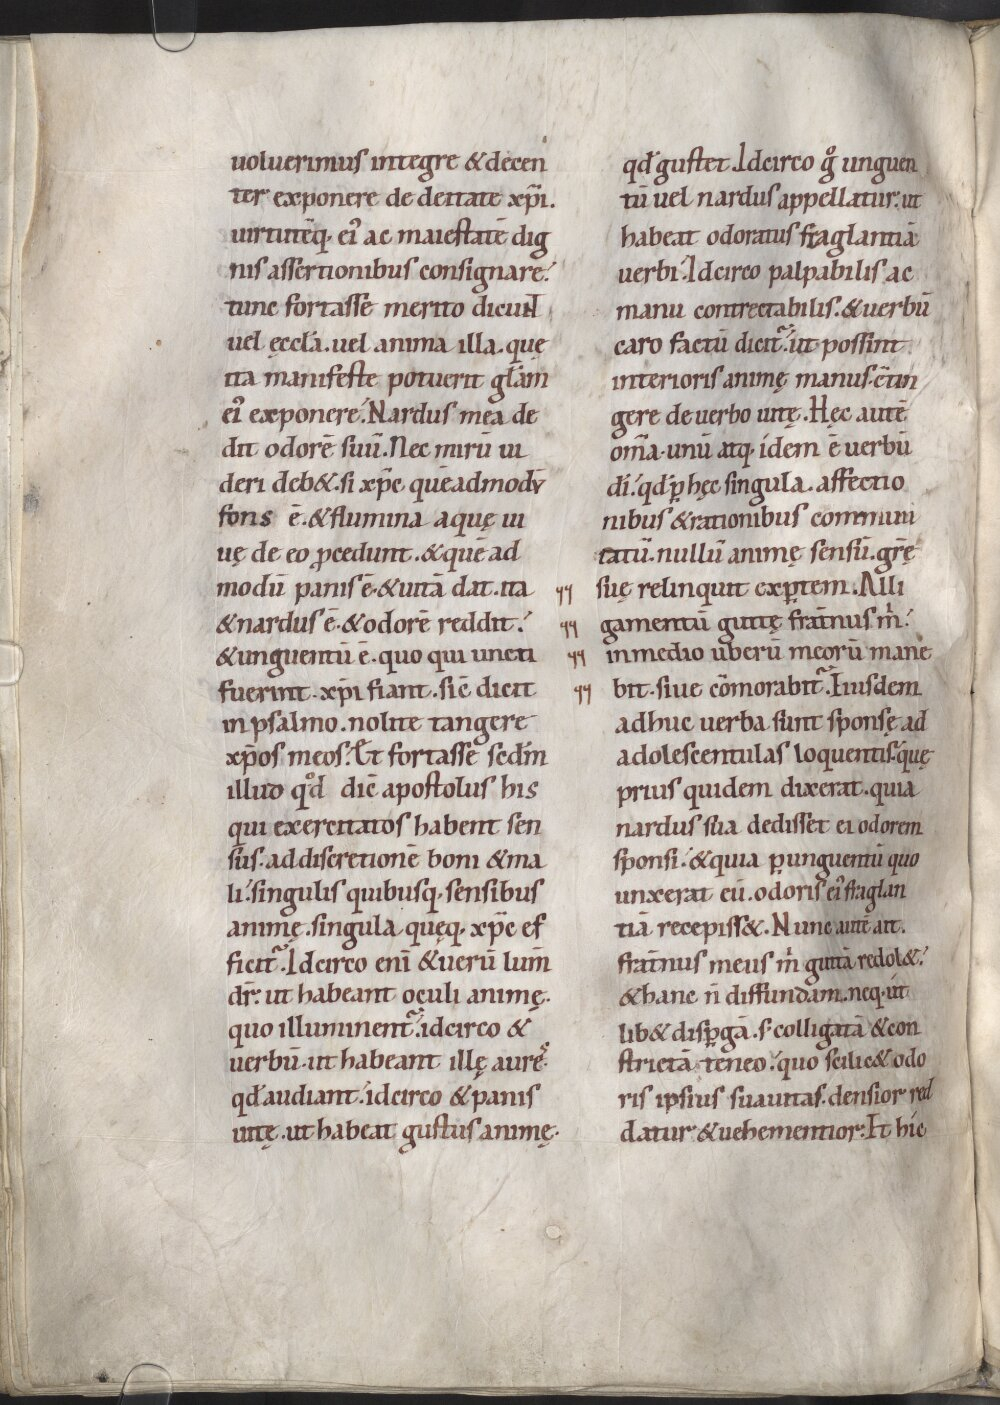 uoluerimus integre & decen
ter exponere de deitate xp̄i.
uirtutēq; ei᾿ ac maiestatē dig
nis assertionibus consignare.᾿
tunc fortasse merito dicun̄t
uel ęccl̄a. uel anima illa. quę
ita manifeste potuerit gl̄am
ei᾿ exponere.᾿ Nardus mea de
dit odorē suū. Nec mirū ui
deri deb&. si xp̄c quēadmodū
fons ē. & flumina aquę ui
uę de eo ꝓcedunt. & quē ad
modū panis ē. & uitā dat. ita
& nardus ē. & odorē reddit.᾿
& unguentū ē. quo qui uncti
fuerint. xp̄i fiant. sic̄ dicit
in psalmo. nolite tangere
xp̄os meos.᾿ Et fortasse scd̄m
illud qd̊ dic̄ apostolus his
qui exercitatos habent sen
sus. ad discretionē boni & ma
li.᾿ singulis quibusq; sensibus
animę. singula quęq; xp̄c ef
ficit᷑. Idcirco eni᷑ & uerū lum̄
dr̄. ut habeant oculi animę.
quo illuminent᷑. idcirco &
uerbū. ut habeant illę aurē.
qd̄ audiant.᾿ idcirco & panis
uitę. ut habeat gustus animę.
qd̄ gustet. Idcirco gͦ unguen
tū uel nardus appellatur. ut
habeat odoratus fraglantiā
uerbi.᾿ Idcirco palpabilis ac
manu contrectabilis. & uerbū
caro factū dicit᷑. ut possint
interioris animę manus. c̄tin
gere de uerbo uitę. Hęc autē
om̄a. unū atq; idem ē uerbū
dī.᾿ qd̄ ꝑ hęc singula. affectio
nibus & rationibus commui
tatū. nullū animę sensū. gr̄ę
suę relinquit exꝑtem. Alli
gamentū guttę frat̄nus m̊.᾿
in medio uberū meorū mane
bit. siue cōmorabit᷑. Eiusdem
adhuc uerba sunt sponsę ad
adolescentulas loquentis. quę
prius quidem dixerat. quia
nardus sua dedisset ei odorem
sponsi.᾿ & quia ꝑ unguentū quo
unxerat eū. odoris ei᾿ fraglan
tiā recepiss&. Nunc autē ait.
frat̄nus meus m̊ guttā redol&.᾿
& hanc n̄ diffundam. neq; ut
lib& disꝑgā. s; colligatā & con
strictā teneo.᾿ quo scilic& odo
ris ipsius suauitas. densior red
datur & uehementior. Et hic